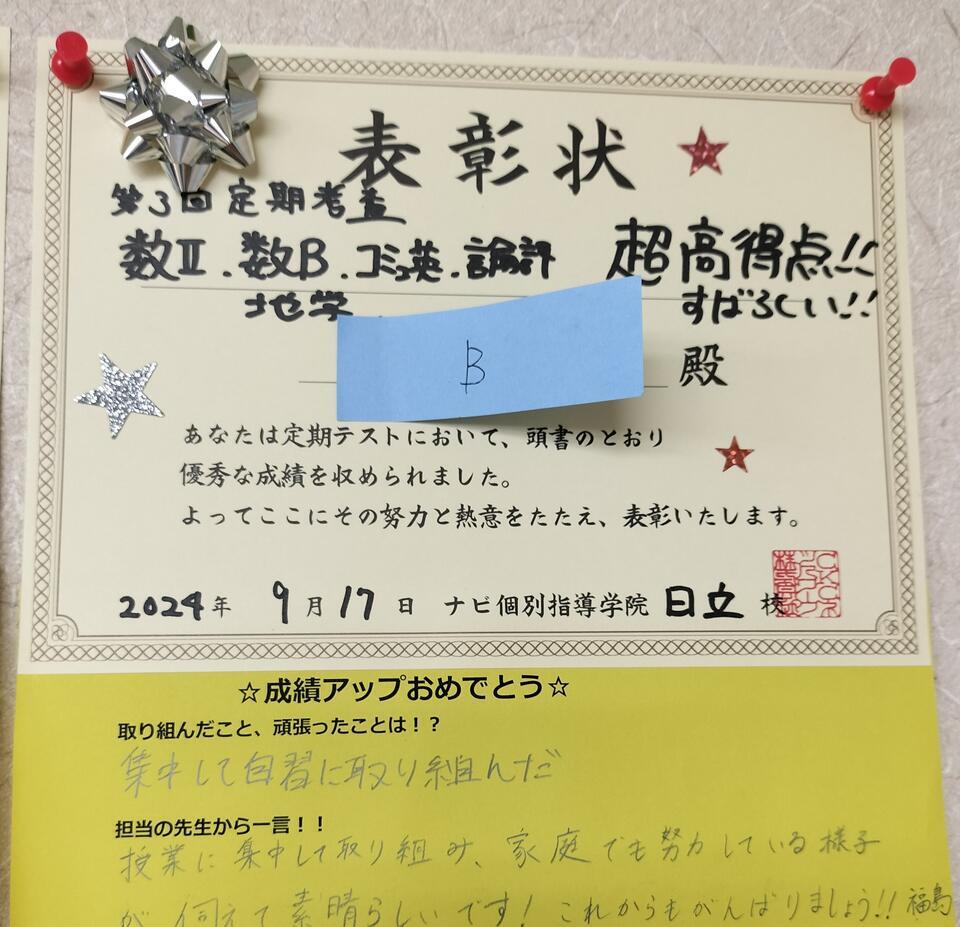 表彰状
第3回定期考査
数Ⅱ.数B.コミュ英.論評 超高得点!!
地学 すばらしい!!
B 殿
あなたは定期テストにおいて、頭書のとおり
優秀な成績を収められました。
よってここにその努力と熱意をたたえ、表彰いたします。
2024年 9月17日 ナビ個別指導学院 日立 校
☆成績アップおめでとう☆
取り組んだこと、頑張ったことは!?
集中して自習に取り組んだ
担当の先生から一言!!
授業に集中して取り組み、家庭でも努力している様子
が伺えて素晴らしいです! これからもがんばりましょう!! 福島